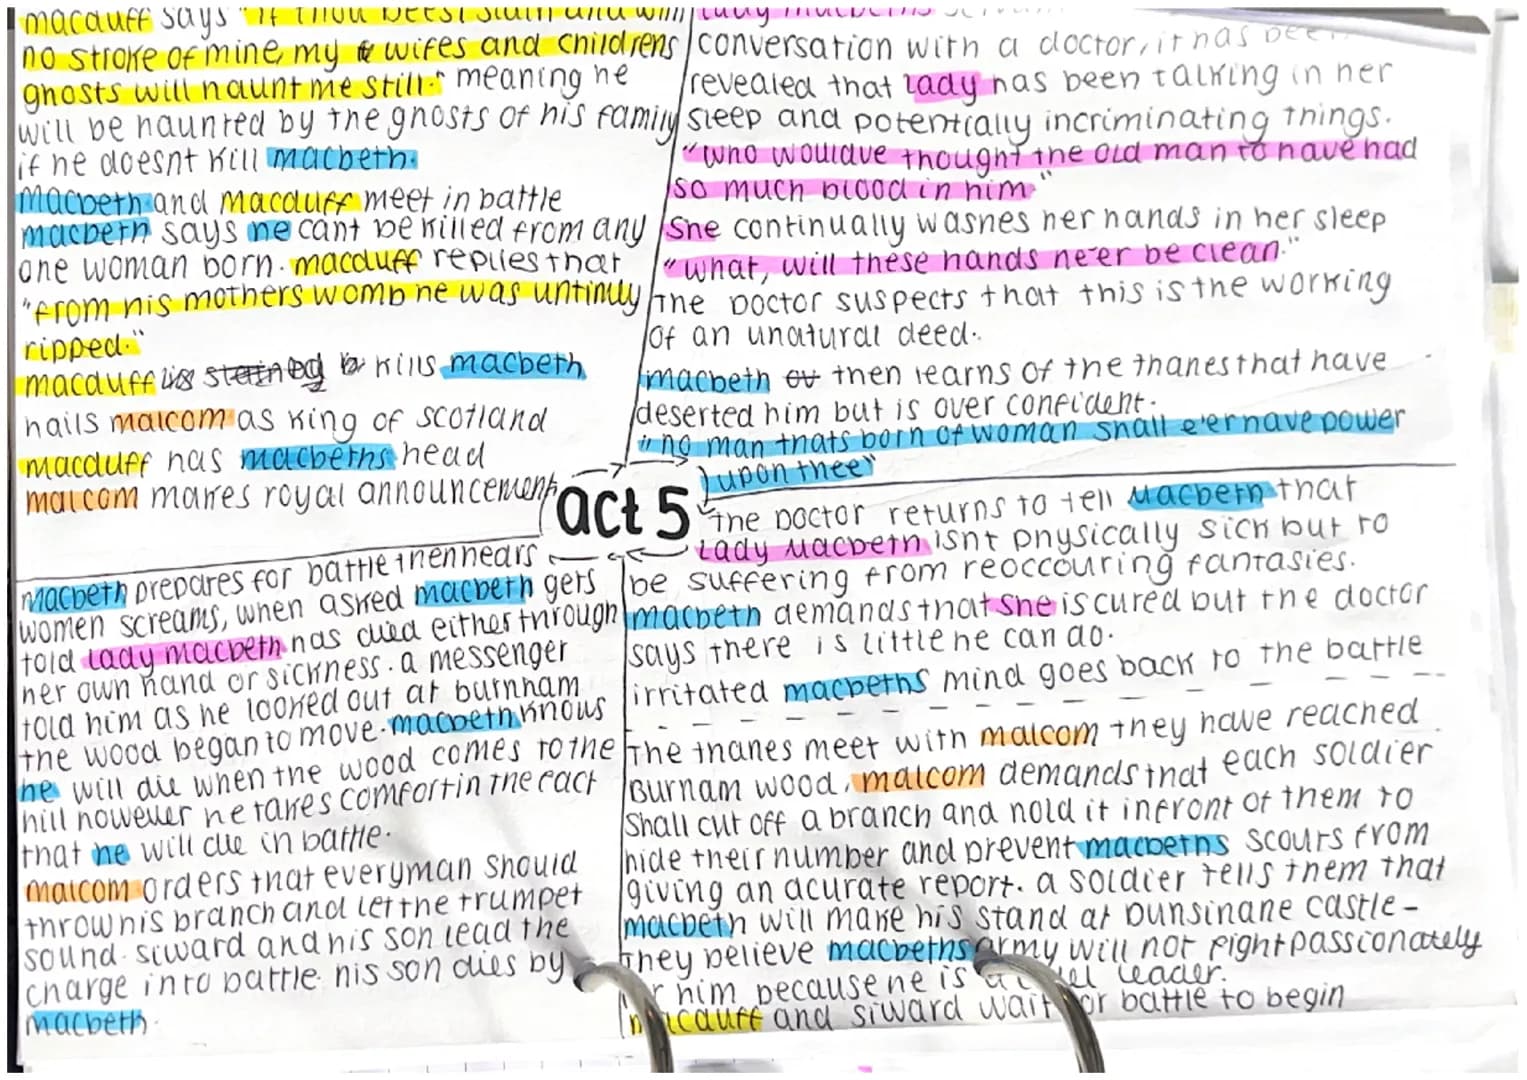 macduff says "if thou beest slain and with
no stroke of mine, my wifes and childrens
ghosts will haunt me still." meaning he
will be haunted by the ghosts of his family
if he doesnt kill macbeth.
macbeth and macduff meet in battle
macbeth says he cant be killed from any
one woman born. macduff replies that
"from his mothers womb he was untimly
ripped."
macduff kills macbeth
hails malcom as king of scotland
macduff has macbeths head
malcom makes royal announcement
lady macbeths
conversation with a doctor, it has been
revealed that lady has been talking in her
sleep and potentially incriminating things.
"who wouldave thought the old man to have had
so much blood in him"
She continually washes her hands in her sleep
"what, will these hands ne'er be clean."
The Doctor suspects that this is the working
of an unatural deed.
macbeth then learns of the thanes that have
deserted him but is over confident.
"no man thats born of woman shall e'er have power
upon thee"
act 5
The Doctor returns to tell Macbeth that
Lady Macbeth isnt physically sick but to
be suffering from reoccouring fantasies.
macbeth demands that she is cured but the doctor
says there is little he can do.
irritated macbeths mind goes back to the battle
The thanes meet with malcom they have reached
Burnam wood. malcom demands that each soldier
Shall cut off a branch and hold it infront of them to
hide their number and prevent macbeths scours from
giving an acurate report. a soldier tells them that
macbeth will make his stand at Dunsinane castle-
They believe macbeths army will not fight passionately
him because he is a leader.
macduff and siward wait for battle to begin
Macbeth prepares for battle then hears
women screams, when asked macbeth gets
told lady macbeth has died either through
her own hand or sickness. a messenger
told him as he looked out at burnham
the wood began to move. macbeth knows
he will die when the wood comes to the
hill however he takes comfort in the fact
that he will die in battle.
malcom orders that everyman should
throw his branch and let the trumpet
sound. siward and his son lead the
charge into battle. his son dies by
macbeth.